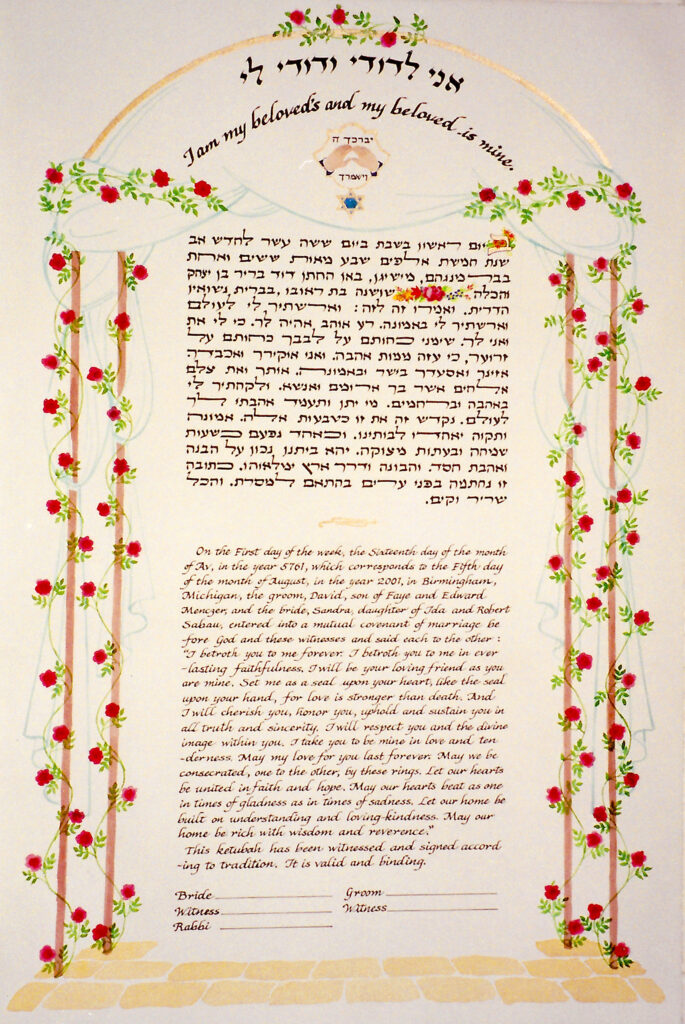 אני לדודי ודודי לי
I am my beloved's and my beloved is mine.
יברכך ה
וישמרך
ביום ראשון בשבת ביום ששה עשר לחדש אב
שנת חמשת אלפים שבע מאות ששים ואחת
בברמנגהם, מישיגן, באו החתן דוד בריר בן יצחק
והכלה שושנה בת ראובן, בברית נשואין
הדדית. ואמרו זה לזה: וארשתיך לי לעולם
וארשתיך לי באמונה. רע אוהב אהיה לך. כי לי את
ואני לך. שימני כחותם על לבבך כחותם על
זרועך, כי עזה ממות אהבה. ואני אוקירך ואכבדך
אזינך ואסעדך בישר ובאמונה. אותך ואת צלם
אלהים אשר בך ארומם ואנשא. ולקחתיך לי
באהבה וברחמים. מי יתן ותעמד אהבתי לך
לעולם. נקדש זה את זו בטבעות אלה. אמונה
ותקוה יאחדו לבותינו. וכאחד נפעם בשעות
שמחה ובעתות מצוקה. יהא ביתנו נכון על הבנה
ואהבת חסד. תבונה ודרך ארץ ימלאוהו. כתובה
זו נחתמה בפני עדים בהתאם למסרת. והכל
שריר וקים.
On the First day of the week, the Sixteenth day of the month
of Av, in the year 5761, which corresponds to the Fifth day
of the month of August, in the year 2001, in Birmingham,
Michigan, the groom, David, son of Faye and Edward
Menczer, and the bride, Sandra, daughter of Ida and Robert
Sabau, entered into a mutual covenant of marriage be-
fore God and these witnesses and said each to the other:
"I betroth you to me forever. I betroth you to me in ever
-lasting faithfulness. I will be your loving friend as you
are mine. Set me as a seal upon your heart, like the seal
upon your hand, for love is stronger than death. And
I will cherish you, honor you, uphold and sustain you in
all truth and sincerity. I will respect you and the divine
image within you. I take you to be mine in love and ten
-derness. May my love for you last forever. May we be
consecrated, one to the other, by these rings. Let our hearts
be united in faith and hope. May our hearts beat as one
in times of gladness as in times of sadness. Let our home be
built on understanding and loving-kindness. May our
home be rich with wisdom and reverence."
This ketubah has been witnessed and signed accord
-ing to tradition. It is valid and binding.
Bride Groom
Witness Witness
Rabbi